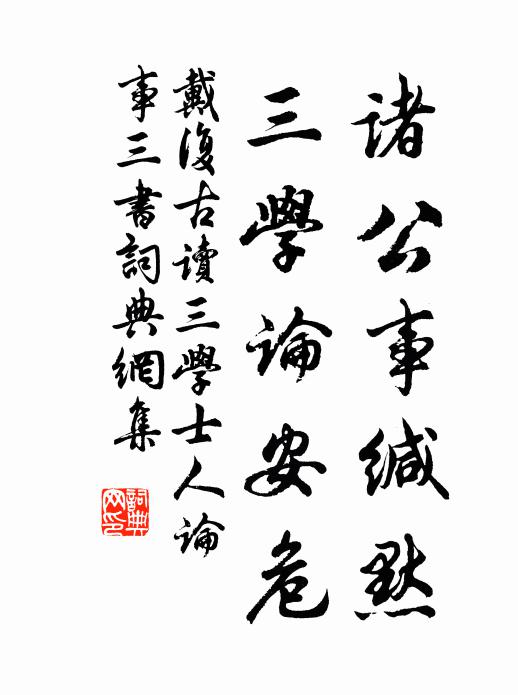 诸公事缄默
三學論安危
戴復古讀三學士人論
事三書詞典網集
詞典网印